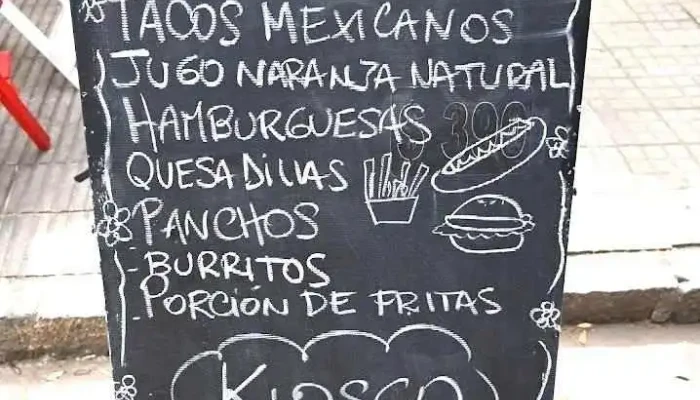 TACOS MEXICANOS
JUGO NARANJA NATURAL
HAMBURGUESAS
QUESADILLAS
PANCHOS
- BURRITOS
- PORCIÓN DE FRITAS
KIOSCO